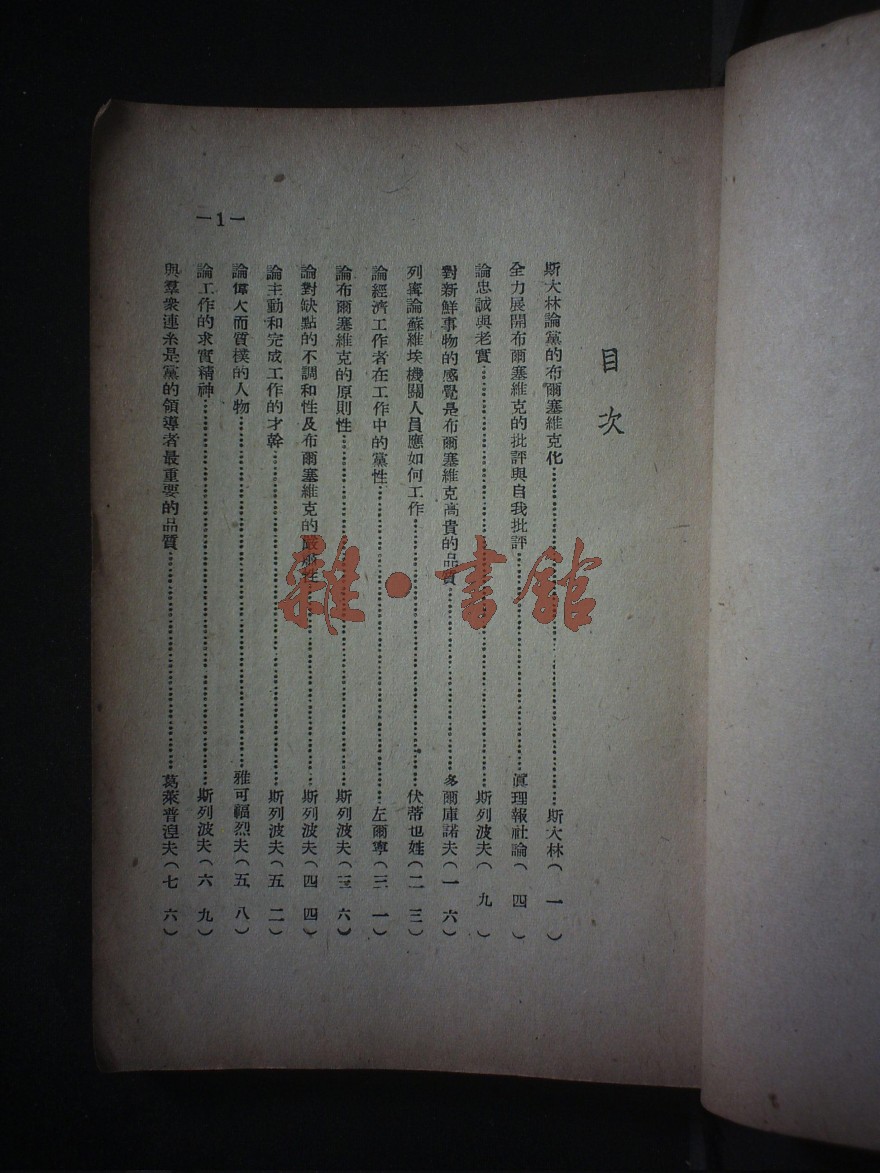 目次
斯大林論黨的布爾塞維克化……斯大林（一）
全力展開布爾塞維克的批評與自我批評……眞理報社論（四）
論忠誠與老實……斯列波夫（九）
對新鮮事物的感覺是布爾塞維克高貴的品質……多爾庫諾夫（一六）
列寧論蘇維埃機關人員應如何工作……伏蒂也姓（二三）
論經濟工作者在工作中的黨性……左爾寧（三一）
論布爾塞維克的原則性……斯列波夫（三六）
論對缺點的不調和性及布爾塞維克的嚴肅性……斯列波夫（四四）
論主動和完成工作的才幹……斯列波夫（五二）
論偉大而質樸的人物……雅可福烈夫（五八）
論工作的求實精神……斯列波夫（六九）
與羣衆連系是黨的領導者最重要的品質……葛萊普湟夫（七六）
—1—
雜·書館